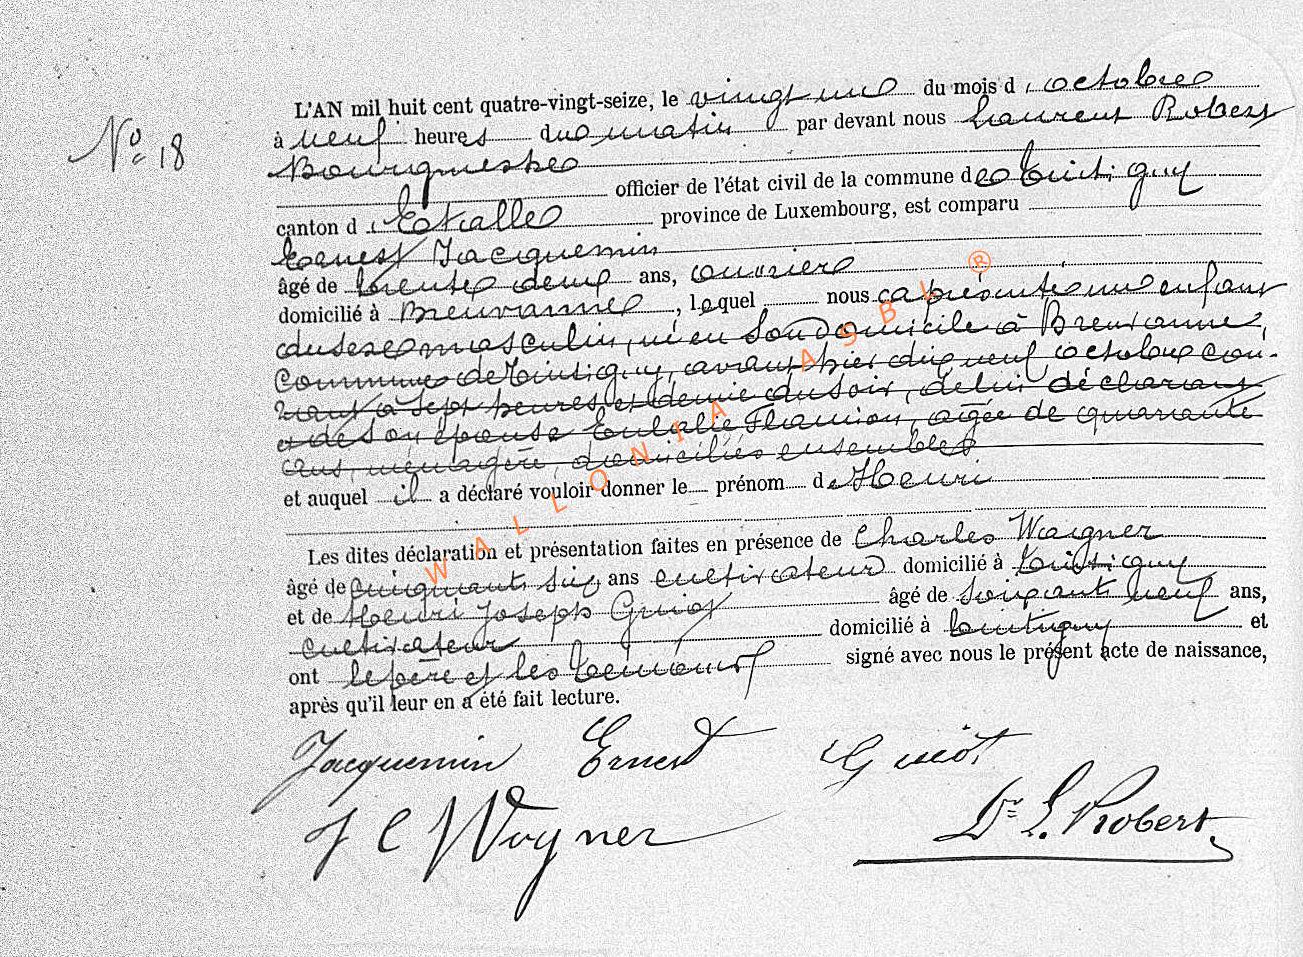 L'AN mil huit cent quatre-vingt-seize, le vingt une du mois d'octobre
No 18
à neuf heures du matin par devant nous Laurent Robert
Bourgmestre
officier de l'état civil de la commune de Tintigny
canton d'Etalle province de Luxembourg, est comparu
Ernest Jacquemin
âgé de trente deux ans, ouvrier
domicilié à Breuvanne, lequel nous a présenté un enfant
du sexe masculin, né en son domicile à Breuvanne,
commune de Tintigny, avant hier dix neuf octobre cou-
rant à sept heures et demie du soir, de lui déclarant
et de son épouse Eulalie Flamion, agée de quarante
ans, ménagère, domiciliés ensembles
et auquel il a déclaré vouloir donner le prénom de Henri
Les dites déclaration et présentation faites en présence de Charles Wagner
âgé de cinquant six ans cultivateur domicilié à Tintigny
et de Henri Joseph Guiot âgé de soixant neuf ans,
cultivateur domicilié à Tintigny et
ont le père et les témoins signé avec nous le présent acte de naissance,
après qu'il leur en a été fait lecture.
Jacquemin Ernest Guiot
J C Wagner Dr L. Robert
WALLONIA ASBL ®